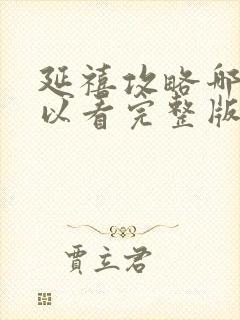 延禧攻略哪
以看完整版
贾立君